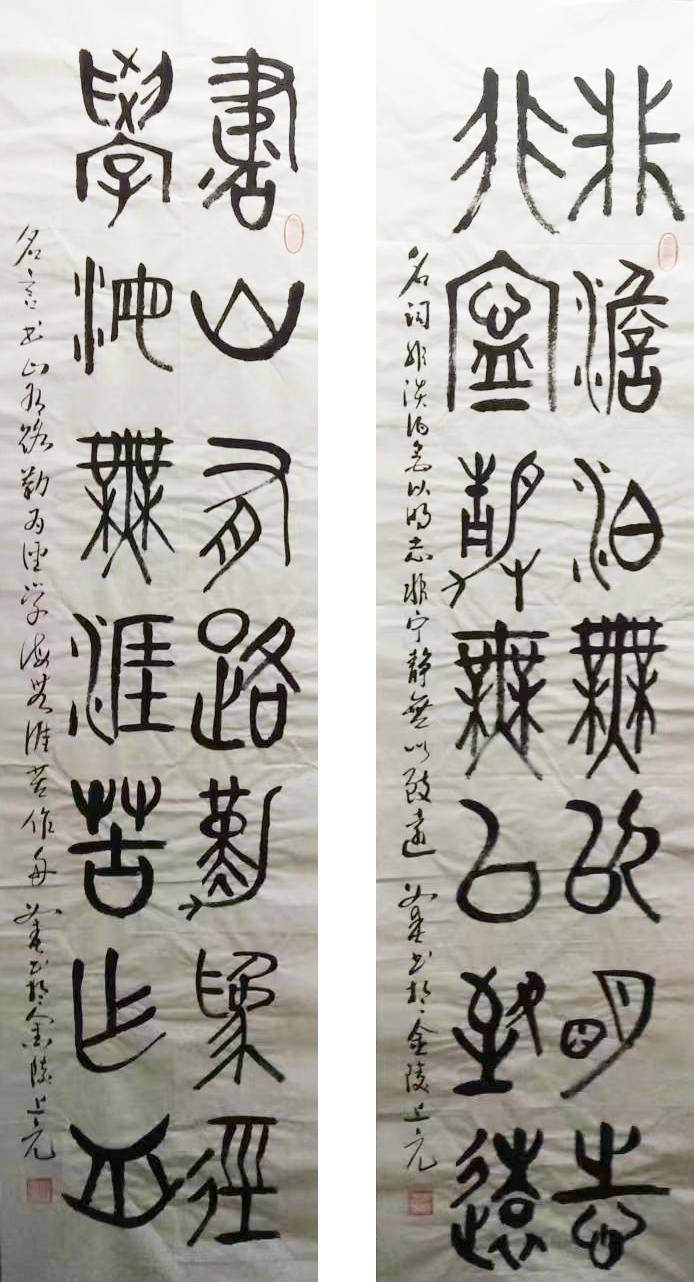 非澹泊無以明志
非寧靜無以致遠
名词非淡泊無以明志非宁静無以致远 书於金陵上元
書山有路勤為徑
學海無涯苦作舟
名言书山有路勤为径学海无涯苦作舟 书於金陵上元